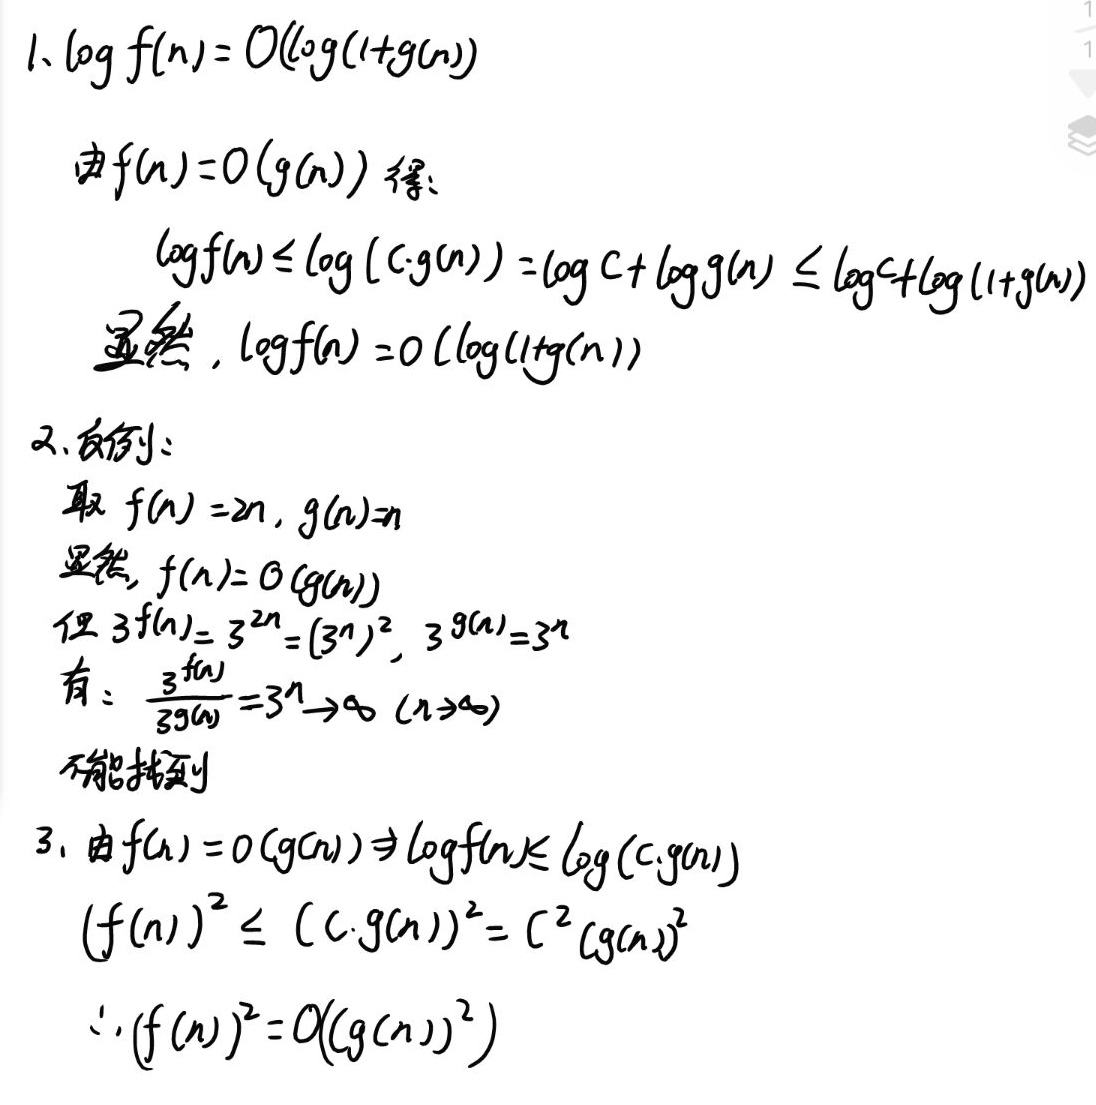 1、log f(n) = O(log(1+g(n))
由 f(n) = O(g(n)) 得:
log f(n) ≤ log (C·g(n)) = log C + log g(n) ≤ log C + log (1+g(n))
显然, log f(n) = O(log(1+g(n))
2、反例:
取 f(n) = 2n, g(n)=n
显然, f(n) = O(g(n))
但 3^f(n) = 3^2n = (3^n)^2, 3^g(n) = 3^n
有: 3^f(n) / 3^g(n) = 3^n → ∞ (n→∞)
不能找到
3、由 f(n) = O(g(n)) ⇒ log f(n) ≤ log (C·g(n))
(f(n))^2 ≤ (C·g(n))^2 = C^2 (g(n))^2
∴ (f(n))^2 = O((g(n))^2)
1
1